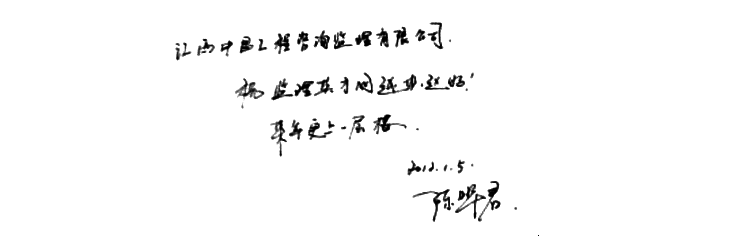 江西中昌工程咨询监理有限公司.
祝监理英才网越办越好!
来年更上一层楼.
2012.1.5.
陈晔君.